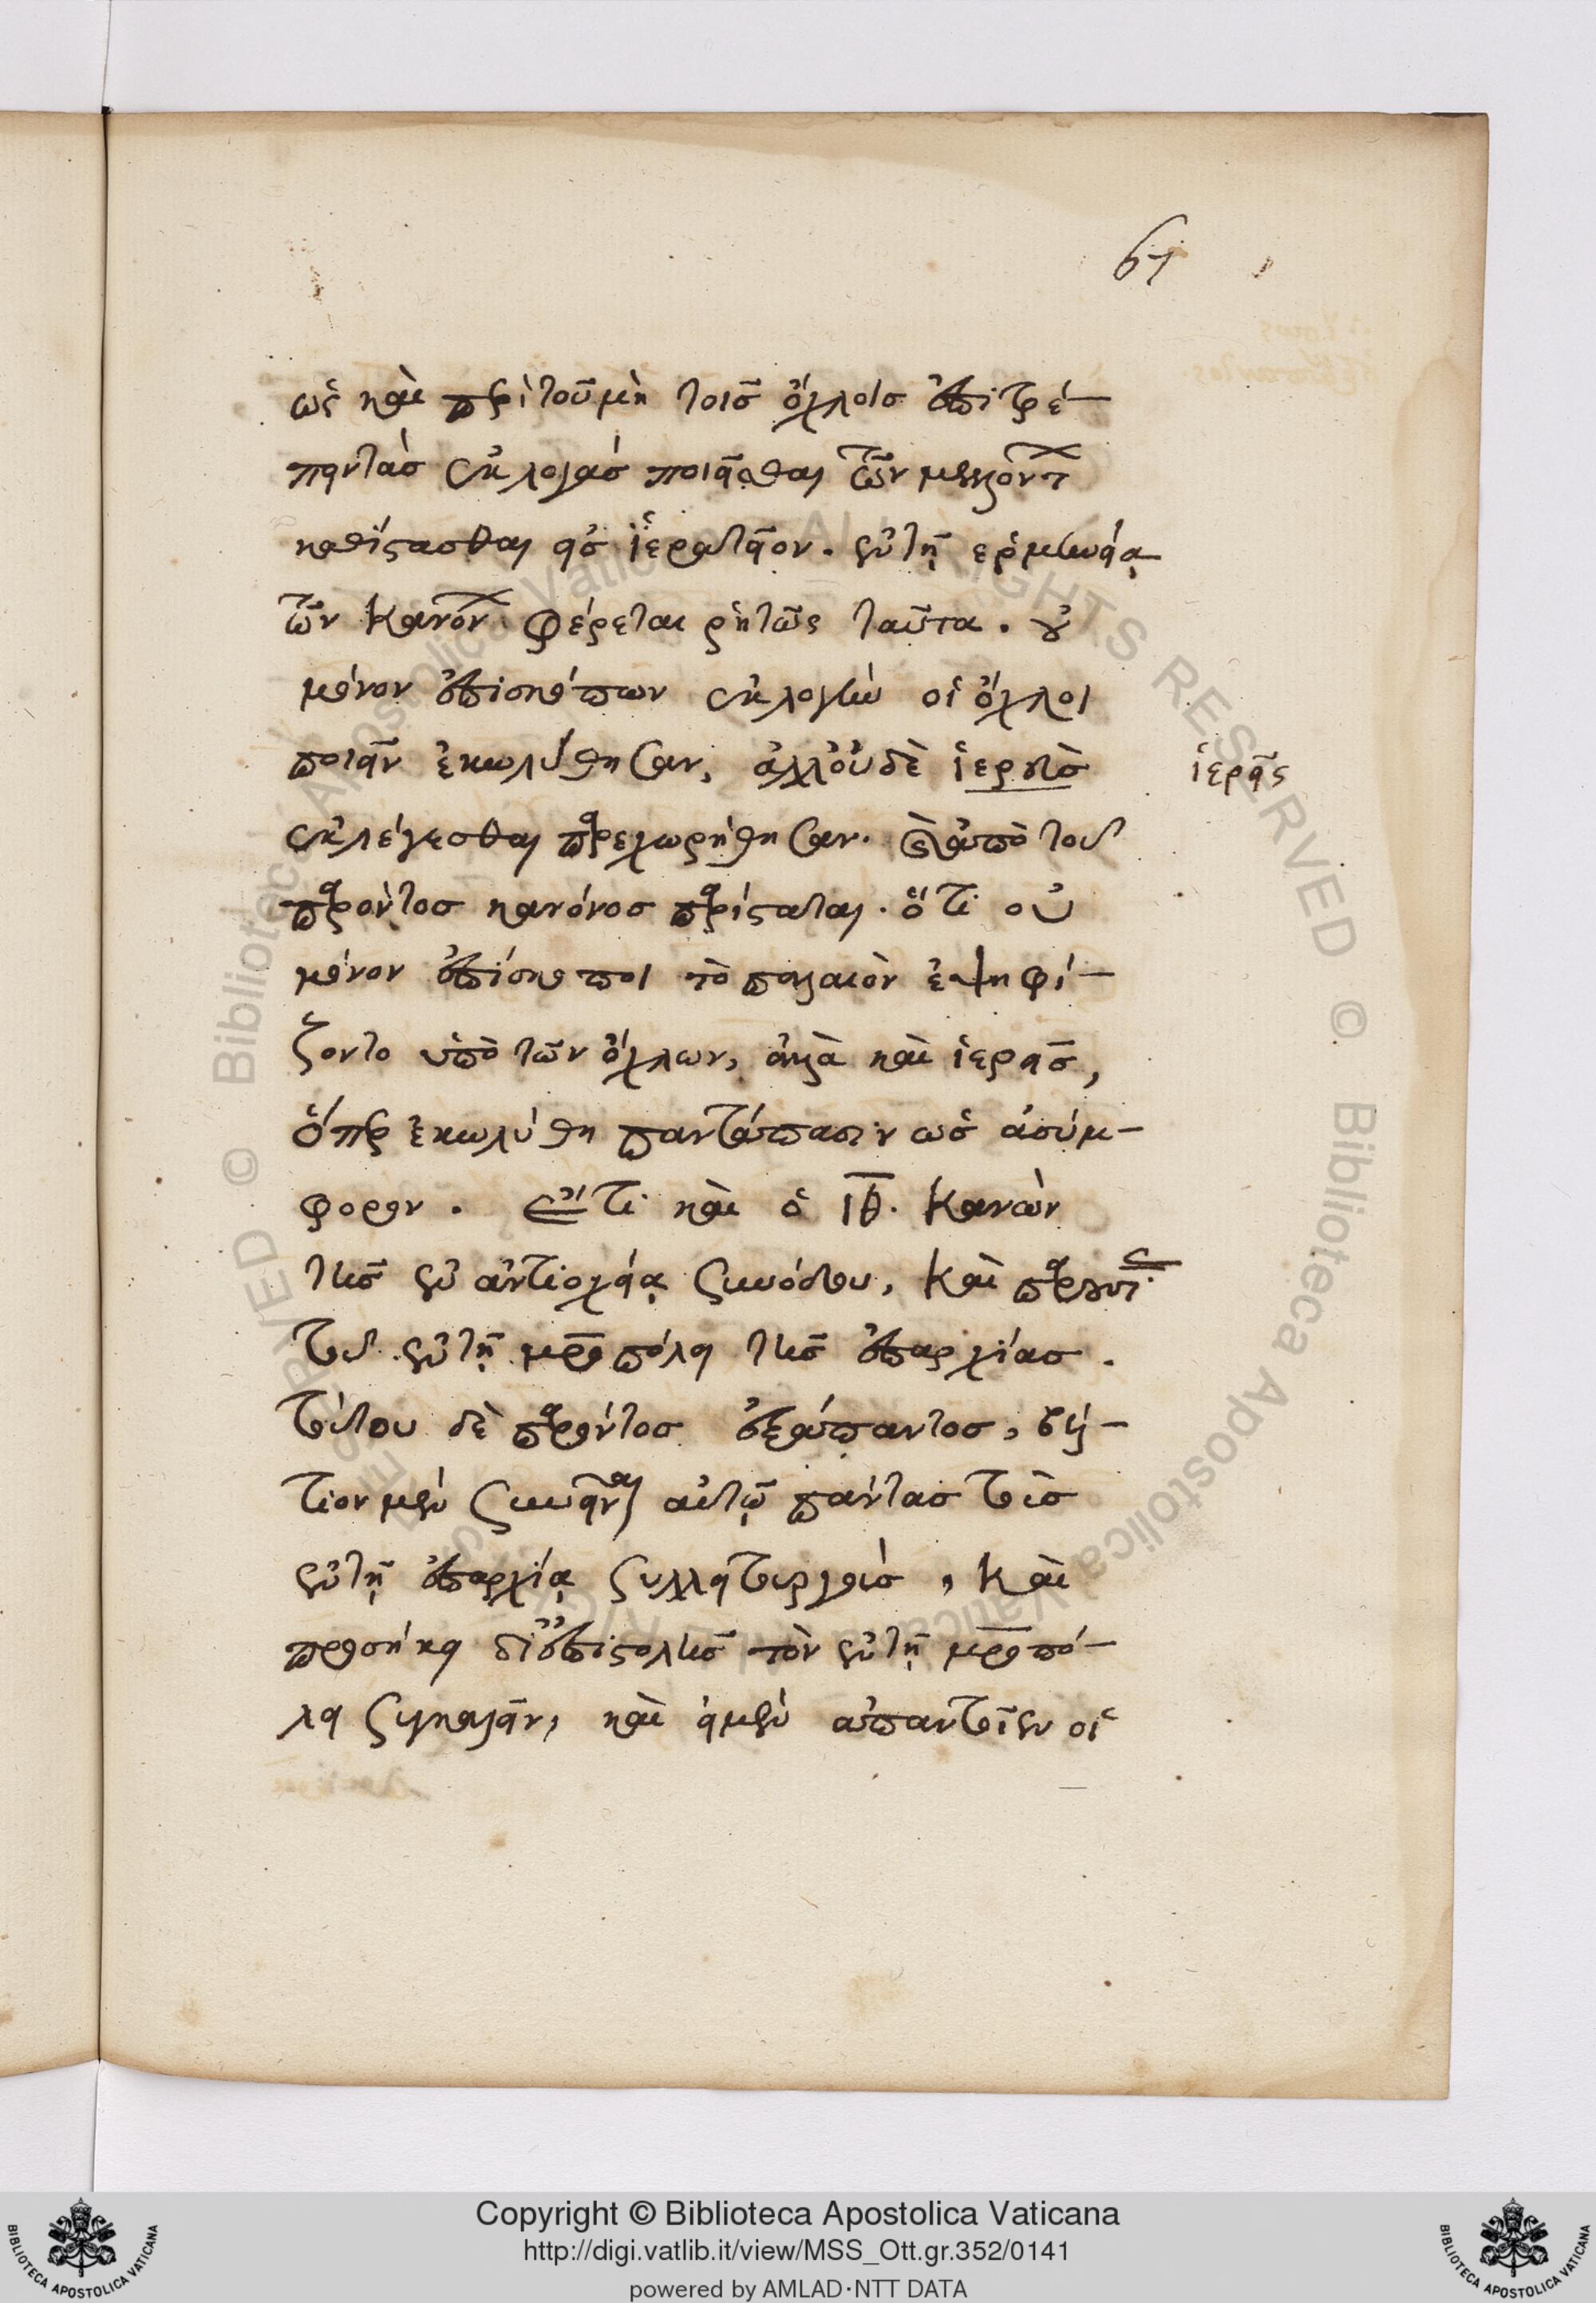 67
ὡς καὶ περὶ τοῦ μὴ τοῖς ὄχλοις ἐπιτρέ-
πειν τὰς ἐκλογὰς ποιεῖσθαι τῶν μελλόντων
καθίστασθαι εἰς ἱερατεῖον. ἐν τῇ ἑρμηνείᾳ
τῶν κανόνων φέρεται ῥητῶς ταῦτα. οὐ
μόνον ἐπισκόπων ἐκλογὴν οἱ ὄχλοι
ποιεῖν ἐκωλύθησαν, ἀλλ' οὐδὲ ἱερεῖς
ἱερεῖς
ἐκλέγεσθαι παρεχωρήθησαν. ἀπὸ τοῦ
παρόντος κανόνος παρίσταται. ὅτι οὐ
μόνον ἐπίσκοποι τὸ παλαιὸν ἐψηφί-
ζοντο ὑπὸ τῶν ὄχλων, ἀλλὰ καὶ ἱερεῖς,
ὅπερ ἐκωλύθη παντάπασιν ὡς ἀσύμ-
φορον. ἔτι καὶ ὁ ΙΘ. κανὼν
τῆς ἐν ἀντιοχείᾳ συνόδου, καὶ παρουσίας
τοῦ ἐν τῇ μητροπόλει τῆς ἐπαρχίας.
τούτου δὲ παρόντος ἐξάπαντος, βέλ-
τιον μὲν συνεῖναι αὐτῷ πάντας τοὺς
ἐν τῇ ἐπαρχίᾳ συλλειτουργοὺς, καὶ
προσήκει δι' ἐπιστολῆς τὸν ἐν τῇ μητροπό-
λει συγκαλεῖν, καὶ εἰ μὲν ἀπαντοῖεν οἱ
Copyright © Biblioteca Apostolica Vaticana
http://digi.vatlib.it/view/MSS_Ott.gr.352/0141
powered by AMLAD·NTT DATA